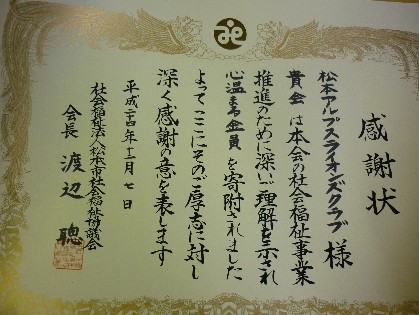 感謝状
松本アルプスライオンズクラブ様
貴会は本会の社会福祉事業
推進のために深いご理解を示され
心温まる金員を寄附されました
よってここにそのご厚志に対し
深く感謝の意を表します
平成二十四年十二月七日
社会福祉法人松本市社会福祉協議会
会長 渡辺聰